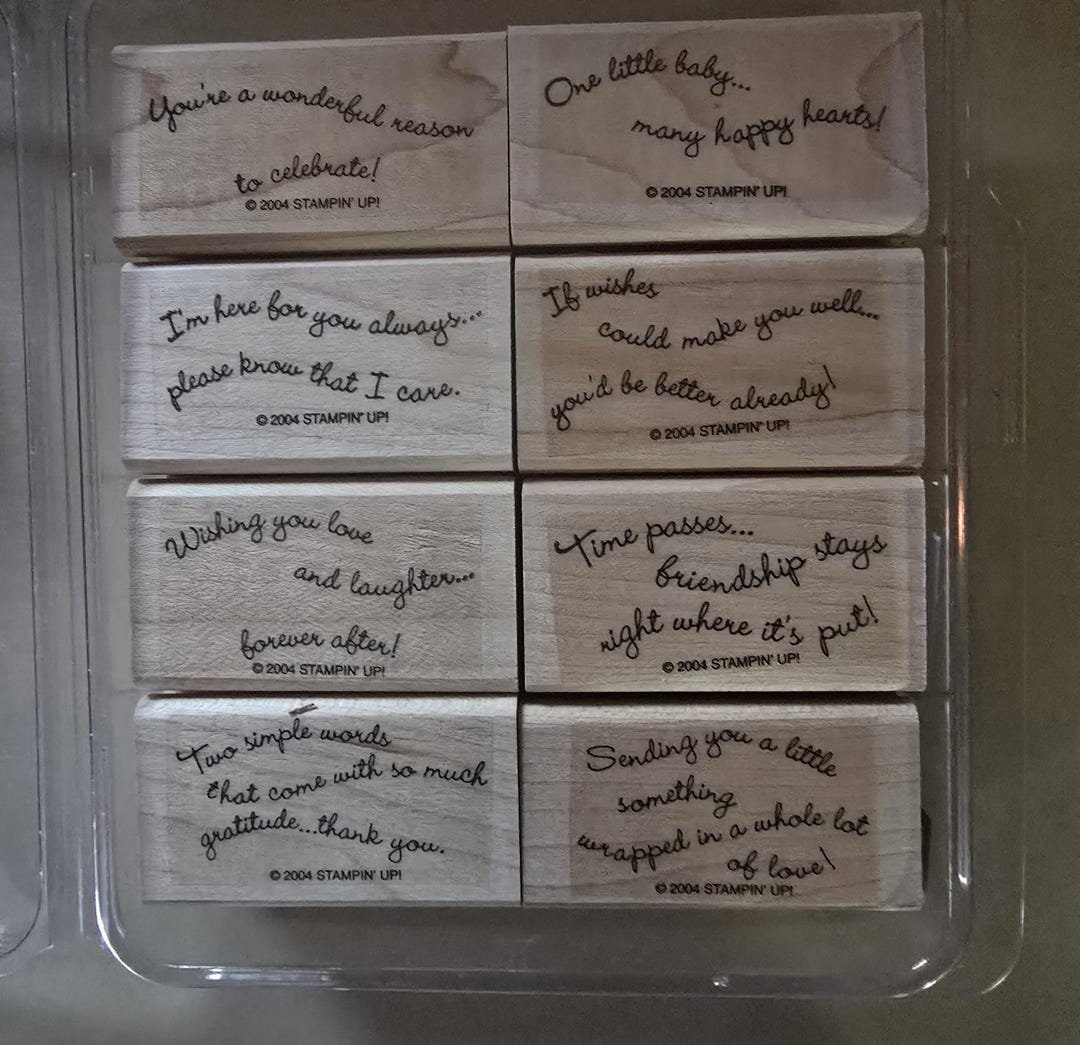 You're a wonderful reason
to celebrate!
© 2004 STAMPIN' UP!
One little baby...
many happy hearts!
© 2004 STAMPIN' UP!
I'm here for you always...
please know that I care.
© 2004 STAMPIN' UP!
If wishes
could make you well...
you'd be better already!
© 2004 STAMPIN' UP!
Wishing you love
and laughter...
forever after!
© 2004 STAMPIN' UP!
Time passes...
friendship stays
right where it's put!
© 2004 STAMPIN' UP!
Two simple words
that come with so much
gratitude...thank you.
© 2004 STAMPIN' UP!
Sending you a little
something
wrapped in a whole lot
of love!
© 2004 STAMPIN' UP!